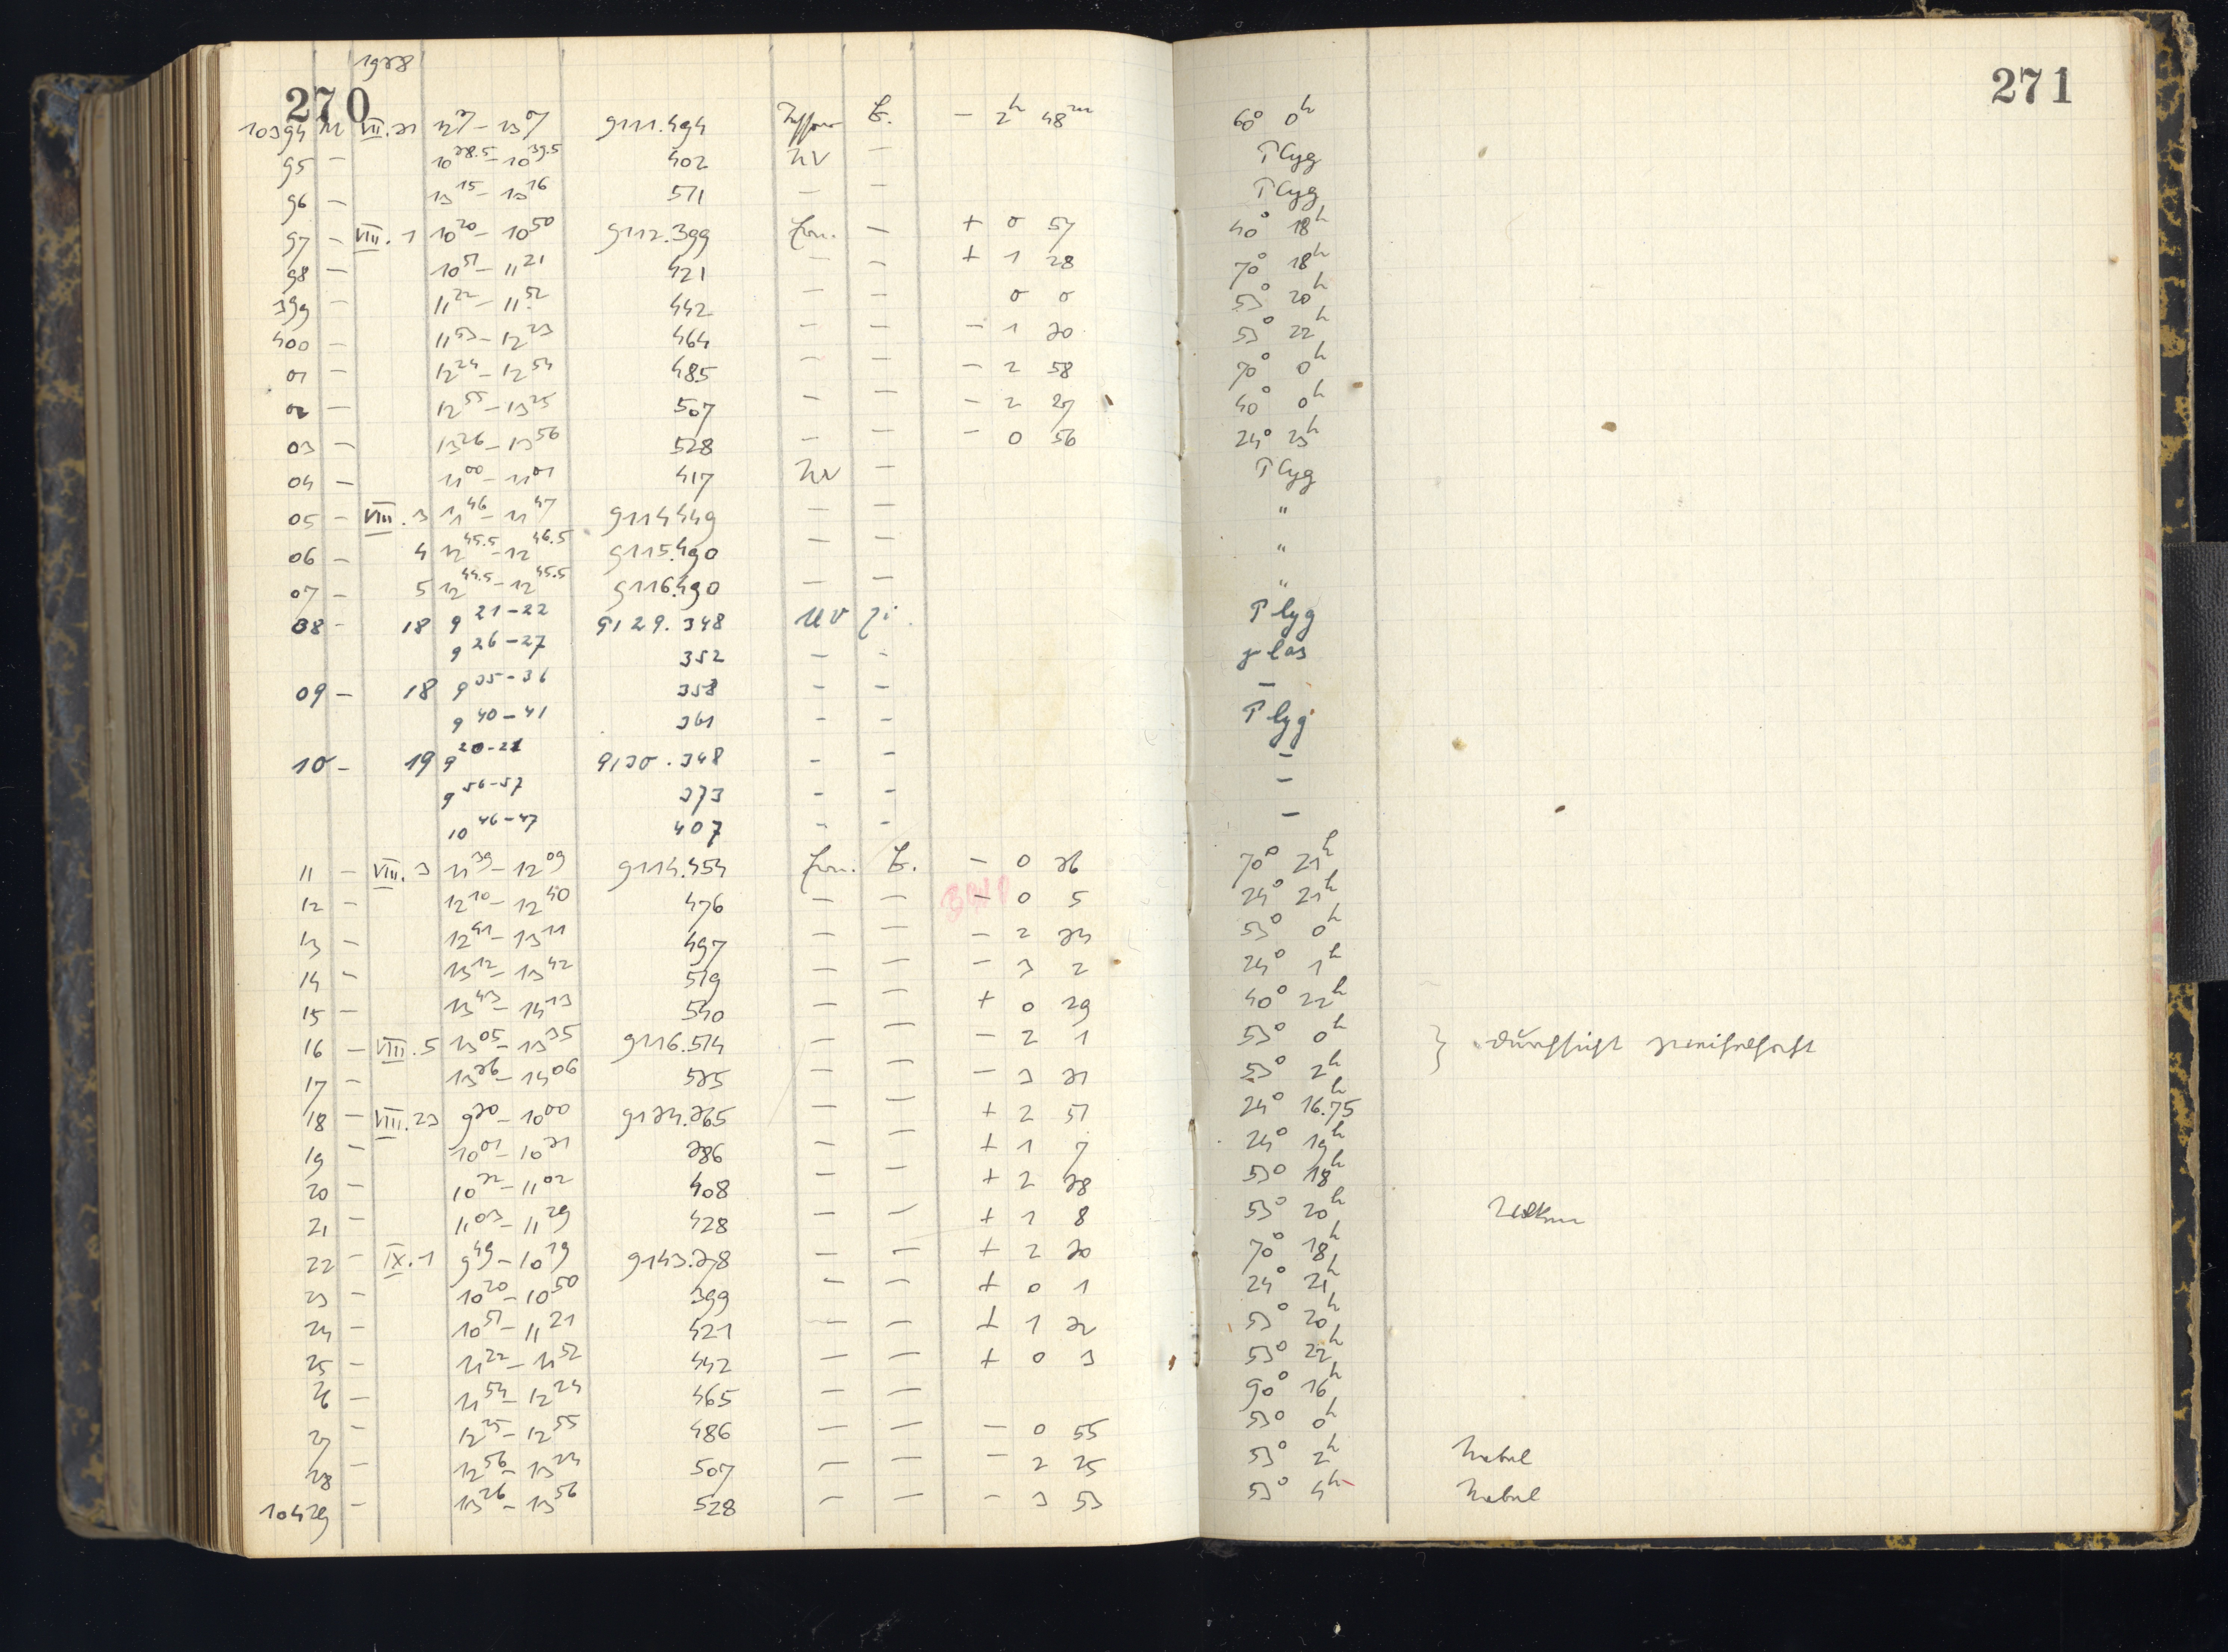 1928
270
271
10394 M VII.31 12 37 – 13 07 9111.494 E. – 2h 48m 60° 0h
95 – 10 38.5 – 10 39.5 402 UV – T Cyg
96 – 13 15 – 13 16 511 – – T Cyg
97 – VIII. 1 10 20 – 10 50 9112.399 – + 0 57 40° 18h
98 – 10 51 – 11 21 421 – – + 1 28 70° 18h
399 – 11 22 – 11 52 442 – – 0 0 53° 20h
400 – 11 53 – 12 23 464 – – – 1 30 53° 22h
01 – 12 24 – 12 54 485 – – – 2 58 70° 0h
02 – 12 55 – 13 25 507 – – – 2 27 40° 0h
03 – 13 26 – 13 56 528 – – – 0 56 24° 23h
04 – 11 00 – 11 01 417 UV – T Cyg
05 – VIII. 3 11 46 – 11 47 9114449 – – "
06 – 4 12 45.5 – 12 46.5 9115.490 – – "
07 – 5 12 44.5 – 12 45.5 9116.490 – – "
08 – 18 9 21–22 9129.348 UV Ji. T Cyg
9 26–27 352 – – γ Cas
09 – 18 9 35–36 358 – – –
9 40–41 361 – – T Cyg
10 – 19 9 20–21 9130.348 – – –
9 56–57 373 – – –
10 46–47 407 – – –
11 – VIII. 3 11 39 – 12 09 9114.454 E. – 0 36 70° 21h
12 – 12 10 – 12 40 476 – – – 0 5 24° 21h
13 – 12 41 – 13 11 497 – – – 2 34 53° 0h
14 – 13 12 – 13 42 519 – – – 3 2 24° 1h
15 – 13 43 – 14 13 540 – – + 0 29 40° 22h
16 – VIII. 5 13 05 – 13 35 9116.514 – – – 2 1 53° 0h } Durchsicht zweifelhaft
17 – 13 36 – 14 06 535 – – – 3 31 53° 2h
18 – VIII. 23 9 30 – 10 00 9134.365 – – + 2 51 24° 16.75h
19 – 10 01 – 10 31 386 – – + 1 7 24° 19h
20 – 10 32 – 11 02 408 – – + 2 38 53° 18h
21 – 11 03 – 11 29 428 – – + 1 8 53° 20h Wolken
22 – IX. 1 9 49 – 10 19 9143.378 – – + 2 30 70° 18h
23 – 10 20 – 10 50 399 – – + 0 1 24° 21h
24 – 10 51 – 11 21 421 – – + 1 32 53° 20h
25 – 11 22 – 11 52 442 – – + 0 3 53° 22h
26 – 11 54 – 12 24 465 – – 90° 16h
27 – 12 25 – 12 55 486 – – – 0 55 53° 0h
28 – 12 56 – 13 24 507 – – – 2 25 53° 2h Nebel
10429 – 13 26 – 13 56 528 – – – 3 53 53° 4h Nebel